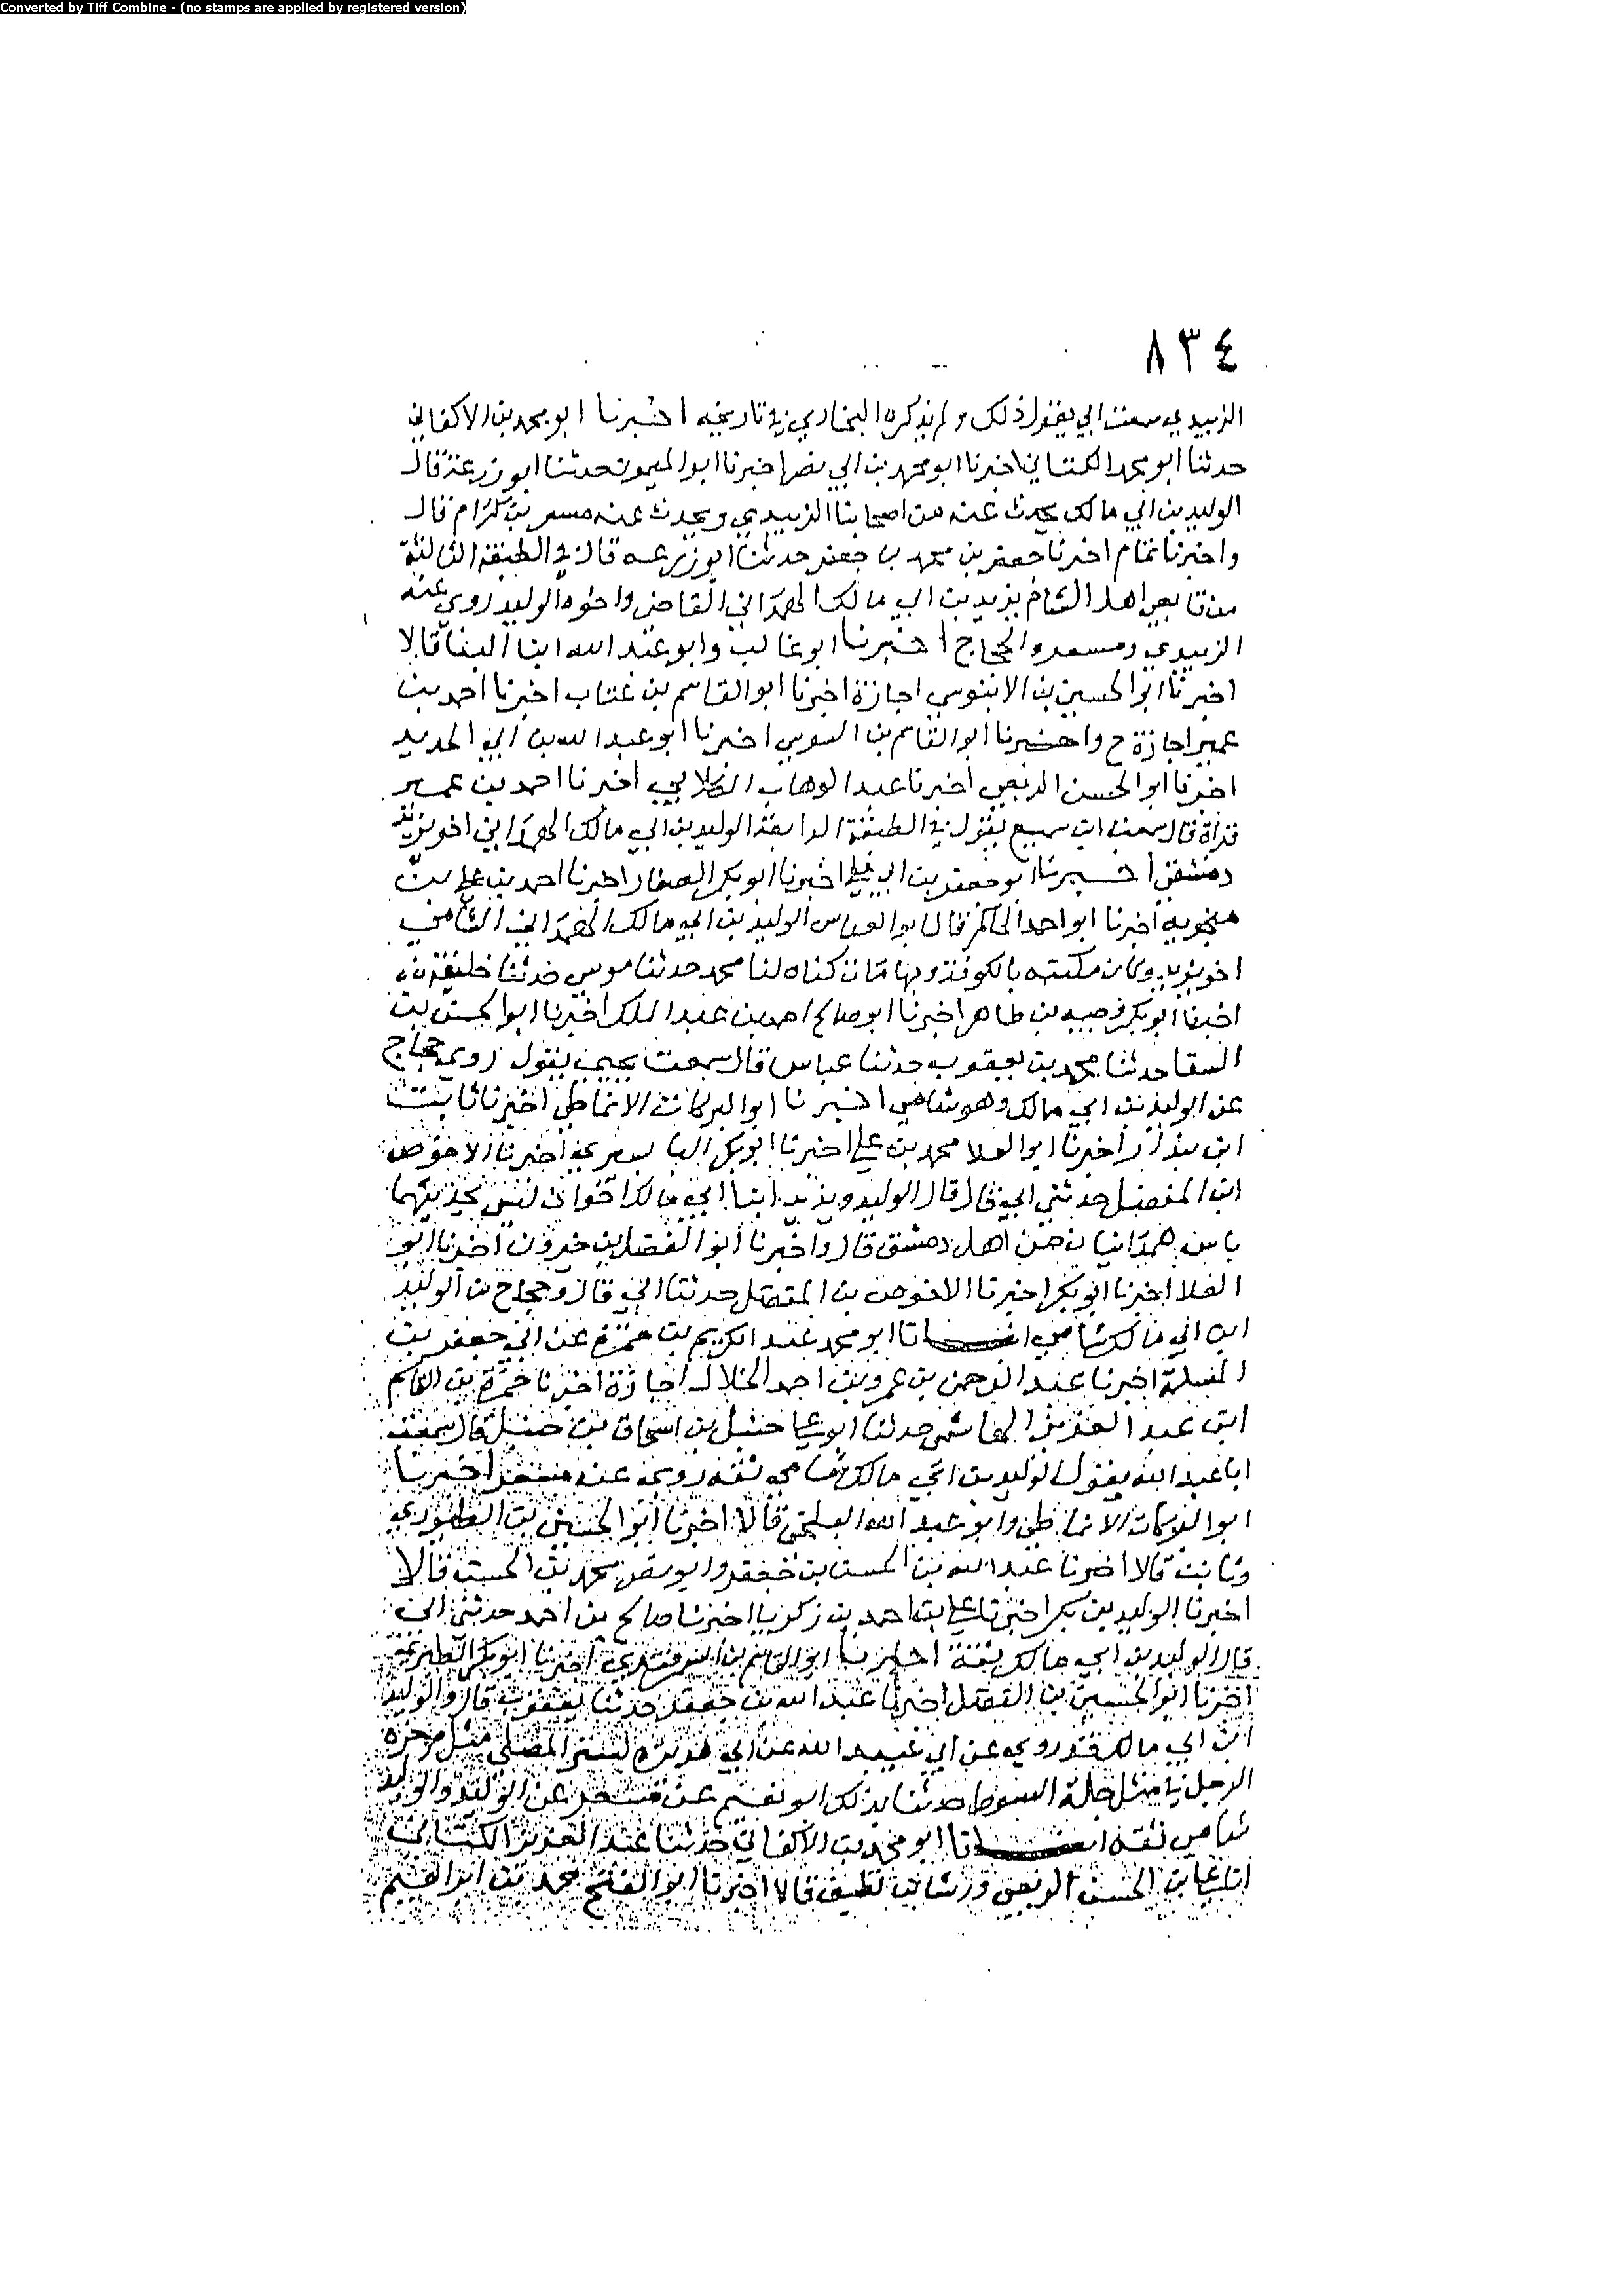 Converted by Tiff Combine - (no stamps are applied by registered version)
٨٣٤
الزبيدي سمعت ابي يقول ذلك ولم يذكره البخاري في تاريخه اخبرنا ابو محمد بن الاكفاني
حدثنا ابو محمد الكتاني اخبرنا ابو محمد بن ابي نصر اخبرنا ابو الميمون حدثنا ابو زرعة قال
الوليد بن ابي مالك يحدث عنه من اصحابنا الزبيدي ويحدث عنه مسعر بن كدام قال
واخبرنا تمام اخبرنا جعفر بن محمد بن جعفر حدثنا ابو زرعه قال في الطبقة الثالثة
من تابعي اهل الشام يزيد بن ابي مالك الهمداني القاضي واخوه الوليد روى عنه
الزبيدي ومسعر والحجاج اخبرنا ابو غالب وابو عبد الله ابنا البنا قالا
اخبرنا ابو الحسين بن الابنوسي اجازة اخبرنا ابو القاسم بن عتاب اخبرنا احمد بن
عمير اجازة ح واخبرنا ابو القاسم بن السوسي اخبرنا ابو عبد الله بن ابي الحديد
اخبرنا ابو الحسن الربعي اخبرنا عبد الوهاب الكلابي اخبرنا احمد بن عمير
قراة قال سمعت ابن سميع يقول في الطبقة الرابعة الوليد بن ابي مالك الهمداني اخو يزيد
دمشقي اخبرنا ابو جعفر بن ابي علي اخبرنا ابو بكر الصفار اخبرنا احمد بن علي بن
منجويه اخبرنا ابو احمد الحاكم قال ابو العباس الوليد بن ابي مالك الهمداني الشامي
اخو يزيد وكان مكتبه بالكوفة وبها مات كناه لنا محمد حدثنا موسى حدثنا خليفة
اخبرنا ابو بكر وجيه بن طاهر اخبرنا ابو صالح احمد بن عبد الملك اخبرنا ابو الحسن بن
السقا حدثنا محمد بن يعقوب حدثنا عباس قال سمعت يحيى يقول روى حجاج
عن الوليد بن ابي مالك وهو شامي اخبرنا ابو البركات الانماطي اخبرنا ثابت
ابن بندار اخبرنا ابو العلا محمد بن علي اخبرنا ابو بكر البابسيري اخبرنا الاحوص
ابن المفضل حدثني ابي قال قال الوليد ويزيد ابنا ابي مالك اخوان ليس بحديثهما
باس همدانيان من اهل دمشق قال واخبرنا ابو الفضل بن خيرون اخبرنا ابو
العلا اخبرنا ابو بكر اخبرنا الاحوص بن المفضل حدثنا ابي قال وحجاج عن الوليد
ابن ابي مالك شامي انبانا ابو محمد عبد الكريم بن حمزة عن ابي جعفر بن
المسلمة اخبرنا عبد الرحمن بن عمر بن احمد الخلال اجازة اخبرنا حمزة بن القاسم
ابن عبد العزيز الهاشمي حدثنا ابو علي حنبل بن اسحاق بن حنبل قال سمعت
ابا عبد الله يقول الوليد بن ابي مالك شامي ثقه روى عنه مسعر اخبرنا
ابو البركات الانماطي وابو عبد الله البلخي قالا اخبرنا ابو الحسين بن الطيوري
وثابت قالا اخبرنا عبد الله بن الحسين بن جعفر وابو نصر محمد بن الحسن قالا
اخبرنا الوليد بن بكر اخبرنا علي بن احمد بن زكريا اخبرنا صالح بن احمد حدثني ابي
قال الوليد بن ابي مالك ثقة اخبرنا ابو القاسم بن السمرقندي اخبرنا ابو بكر الطبري
اخبرنا ابو الحسين بن الفضل اخبرنا عبد الله بن جعفر حدثنا يعقوب قال والوليد
ابن ابي مالك قد روى عن ابي عبيد الله عن ابي هريره ليستر المصلي مثل موخره
الرحل في مثل جلة السوط حدثنا بذلك ابو نعيم عن مسعر عن الوليد والوليد
شامي ثقه انبانا ابو محمد بن الاكفاني حدثنا عبد العزيز الكتاني
انا علي بن الحسن الربعي ورشا بن نظيف قالا اخبرنا ابو الفتح محمد بن ابراهيم